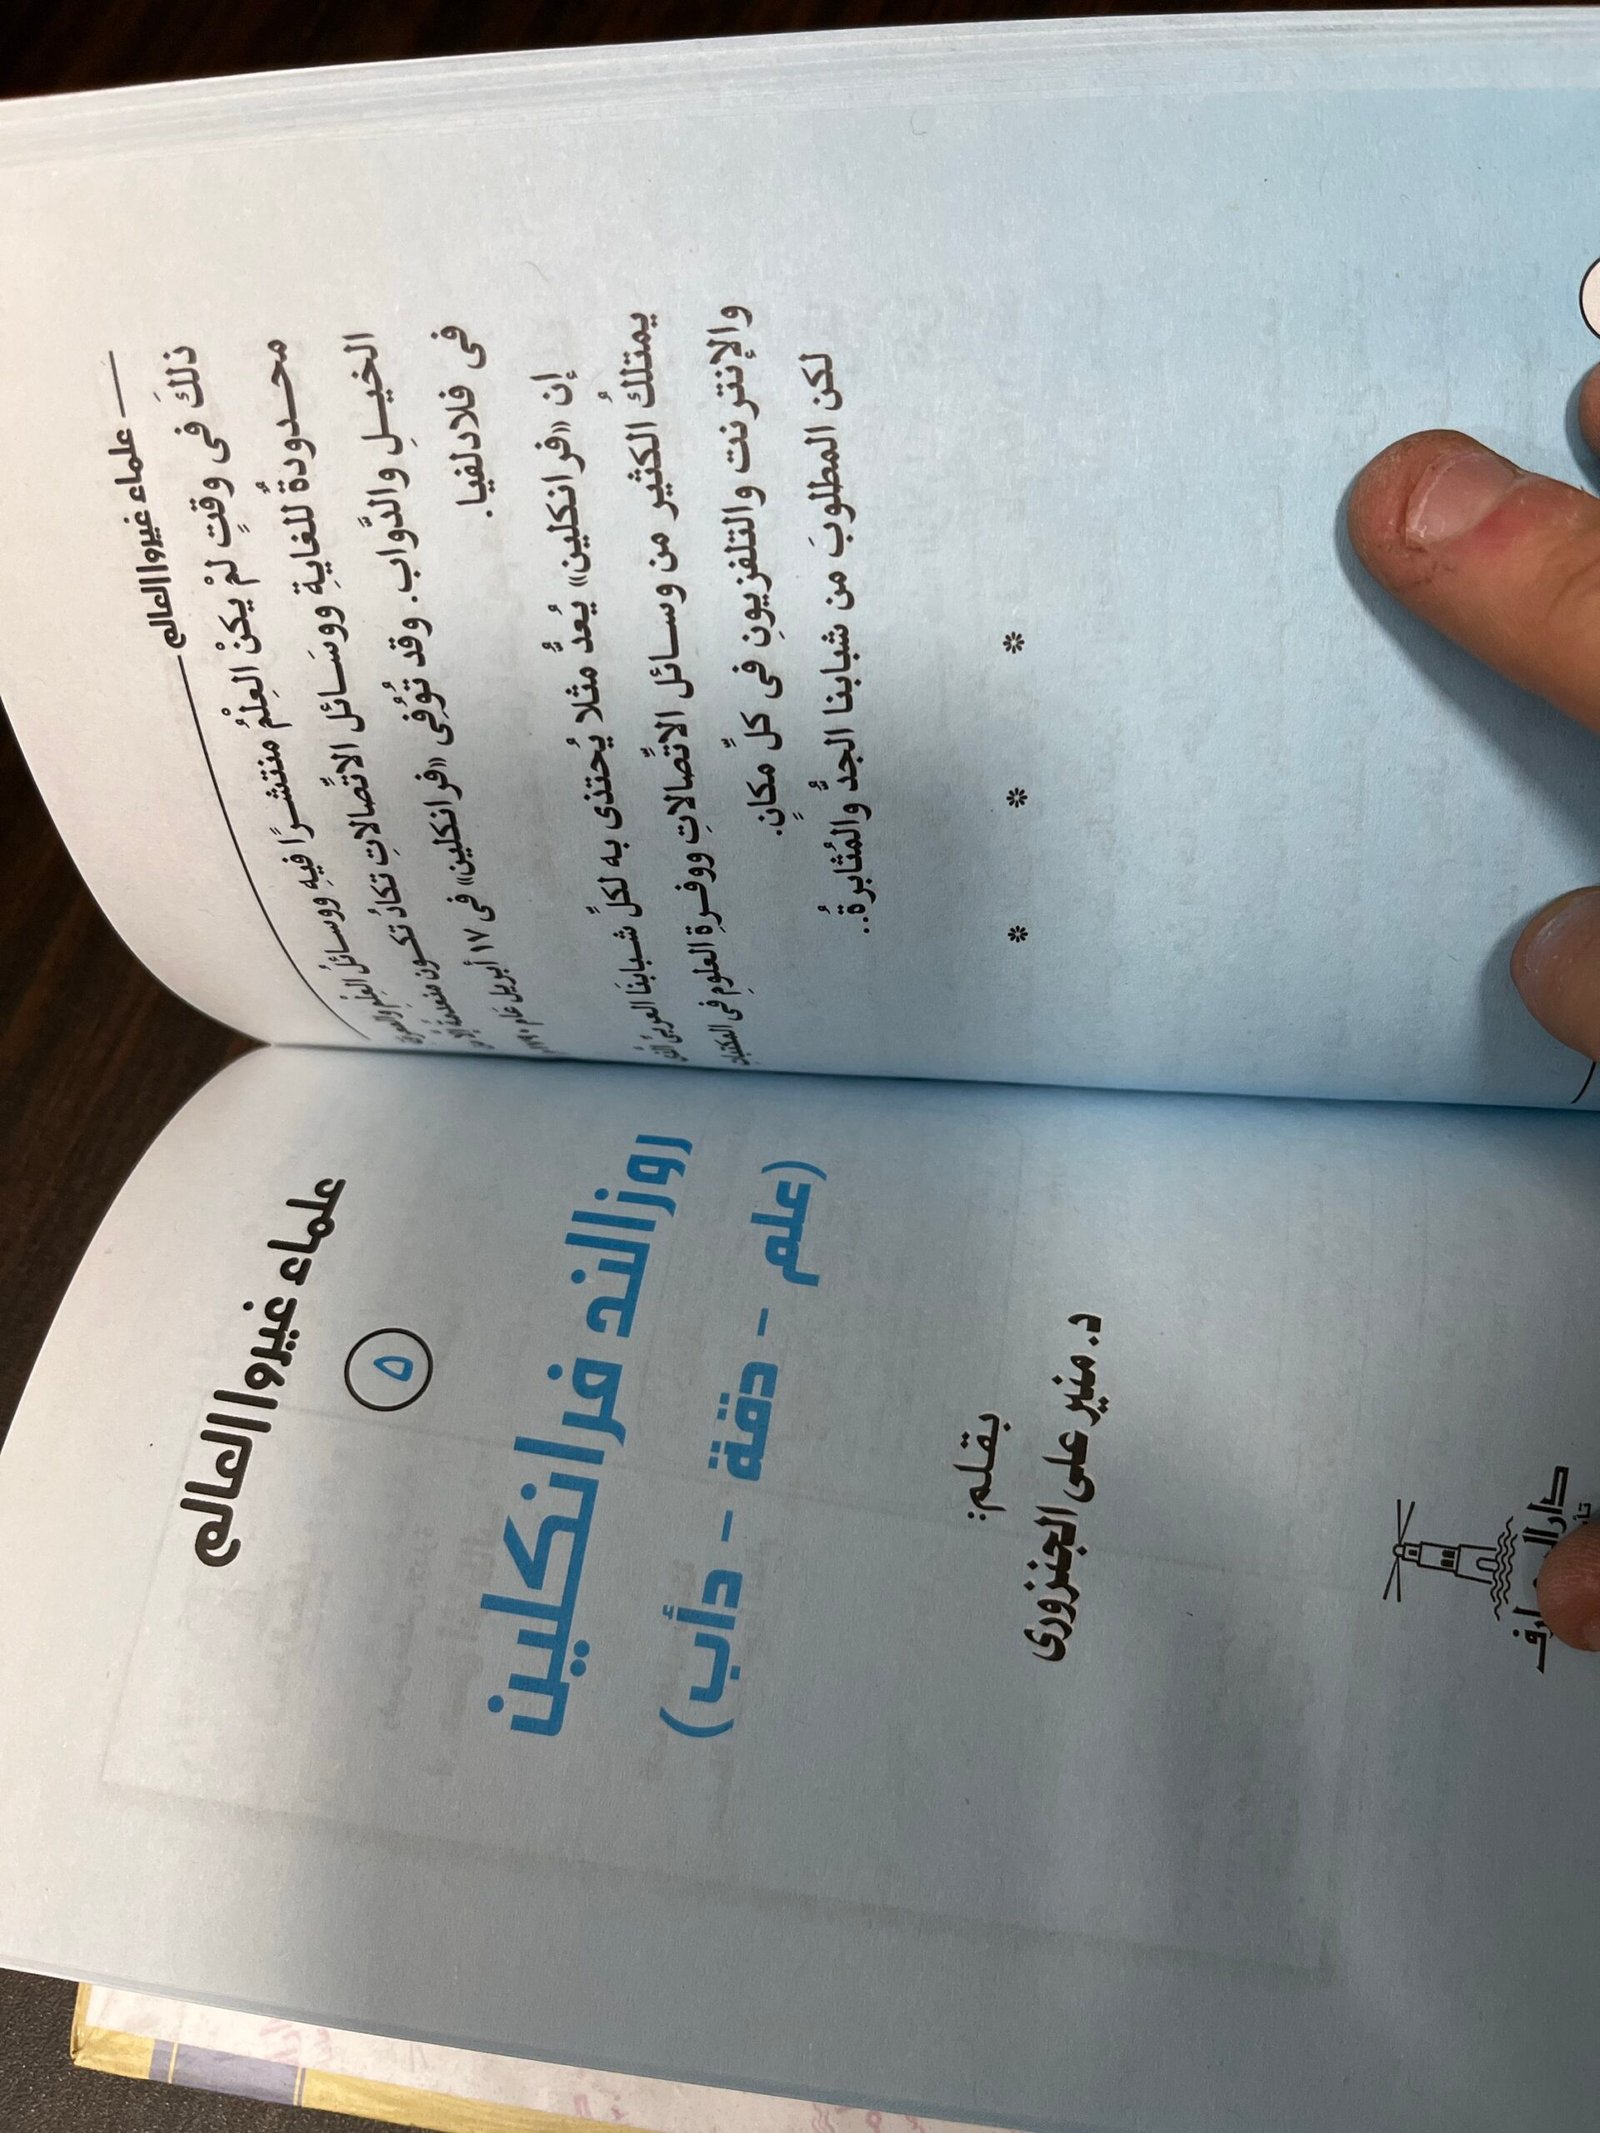 علماء غيروا العالم
ذلكَ فى وقتٍ لمْ يكنْ العِلْمُ منتشرًا فيهِ ووسائلُ العِلْمِ والمعرفة
محدودةٌ للغايةِ ووسَائل الاتِّصالاتِ تكادُ تكون منعدمةً إلا من
الخيلِ والدَّواب. وقد تُوُفِى «فرانكلين» فى ١٧ أبريل عَام ١٧٩٠م
فى فلادلفيا.
إن «فرانكلين» يُعدُّ مثلا يُحتذى به لكلِّ شبابنَا العربىِّ الذى
يمتلكُ الكثير من وسائل الاتِّصالاتِ ووفرةِ العلومِ فى المكتباتِ
والإنترنت والتلفزيونِ فى كلِّ مكانٍ.
لكن المطلوبَ من شبابنا الجدُّ والمُثابرةُ..
* * *
علماء غيروا العالم
٥
روزالند فرانكلين
(علم - دقة - دأب)
بقلم:
د. منير على الجنزورى